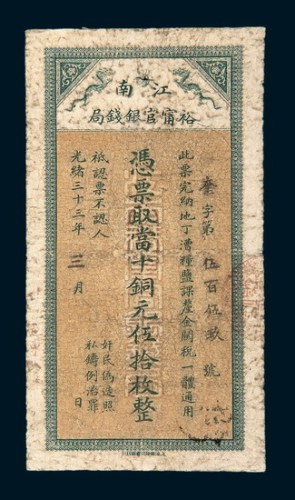 江南
裕甯官銀錢局
字第伍百伍玖號
此票完納地丁漕糧鹽課釐金關稅一體通用
憑票取當十銅元伍拾枚整
祇認票不認人
光緒三十三年三月 日
奸民偽造照
私鑄例治罪